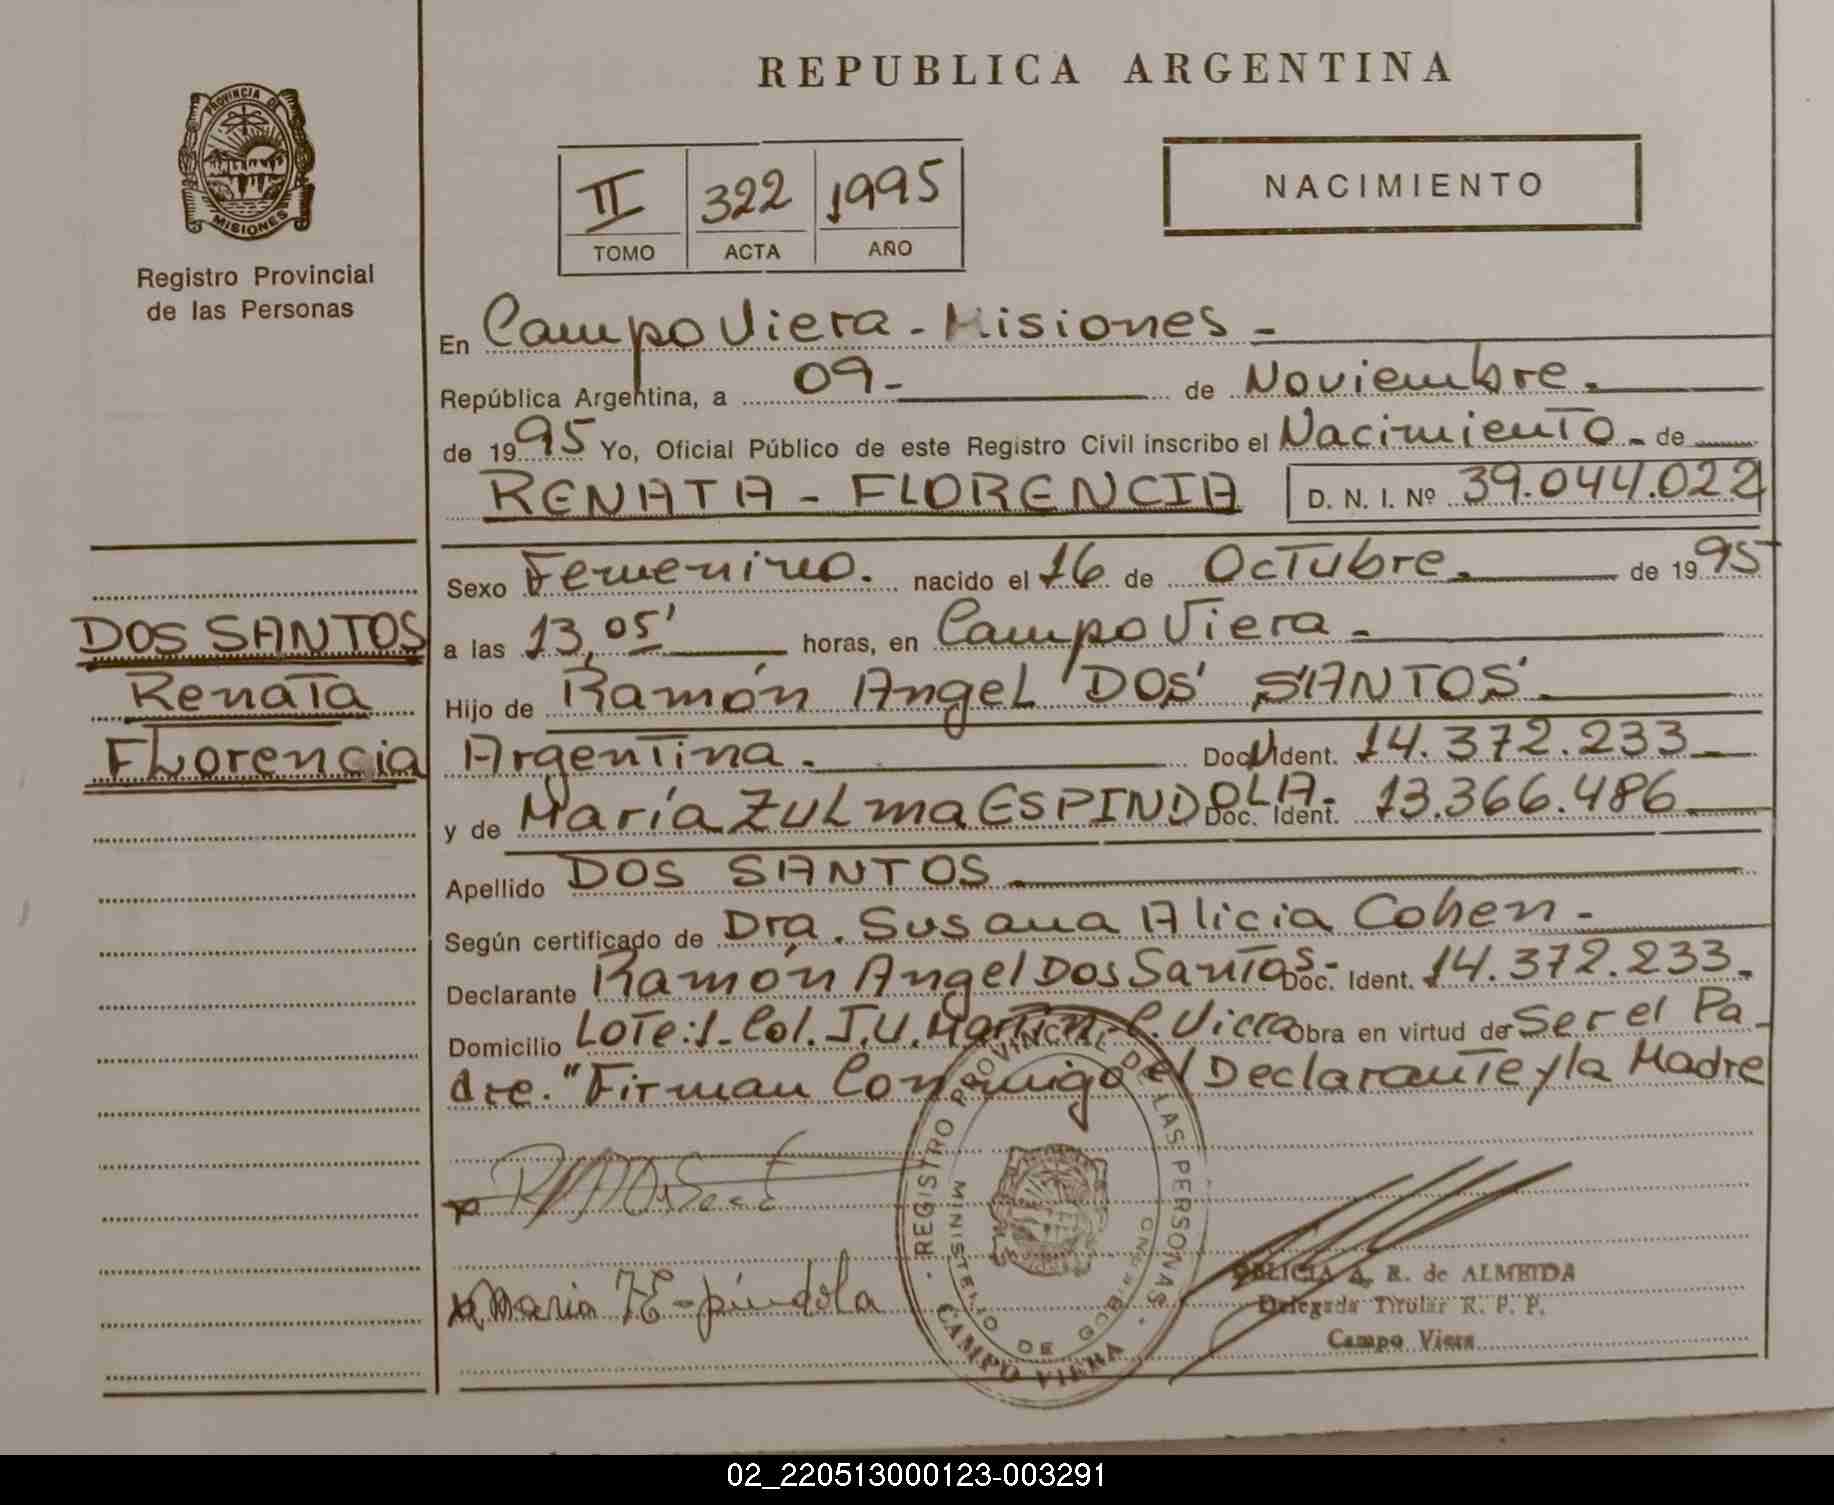 REPUBLICA ARGENTINA
PROVINCIA DE
MISIONES
Registro Provincial
de las Personas
II 322 1995
TOMO ACTA AÑO
NACIMIENTO
En Campo Viera - Misiones -
República Argentina, a 09- de Noviembre.
de 1995 Yo, Oficial Público de este Registro Civil inscribo el Nacimiento - de
RENATA - FLORENCIA D. N. I. Nº 39.044.022
Sexo Femenino. nacido el 16 de Octubre. de 1995
DOS SANTOS
Renata
Florencia
a las 13,05' horas, en Campo Viera -
Hijo de Ramón Angel 'DOS' SANTOS'.
Argentina. Doc. Ident. 14.372.233
y de María Zulma ESPINDOLA- Doc. Ident. 13.366.486
Apellido DOS SANTOS
Según certificado de Dra. Susana Alicia Cohen -
Declarante Ramón Angel Dos Santos- Doc. Ident. 14.372.233.
Domicilio Lote:1- Col. J.U. Martin- C. Viera Obra en virtud de Ser el Pa-
dre. "Firman Conmigo el Declarante y la Madre
Maria Z E-píndola
REGISTRO PROVINCIAL DE LAS PERSONAS
MINISTERIO DE GOB.
CAMPO VIERA
A. R. de ALMEIDA
Delegada Titular R. P. P.
Campo Viera
02_220513000123-003291